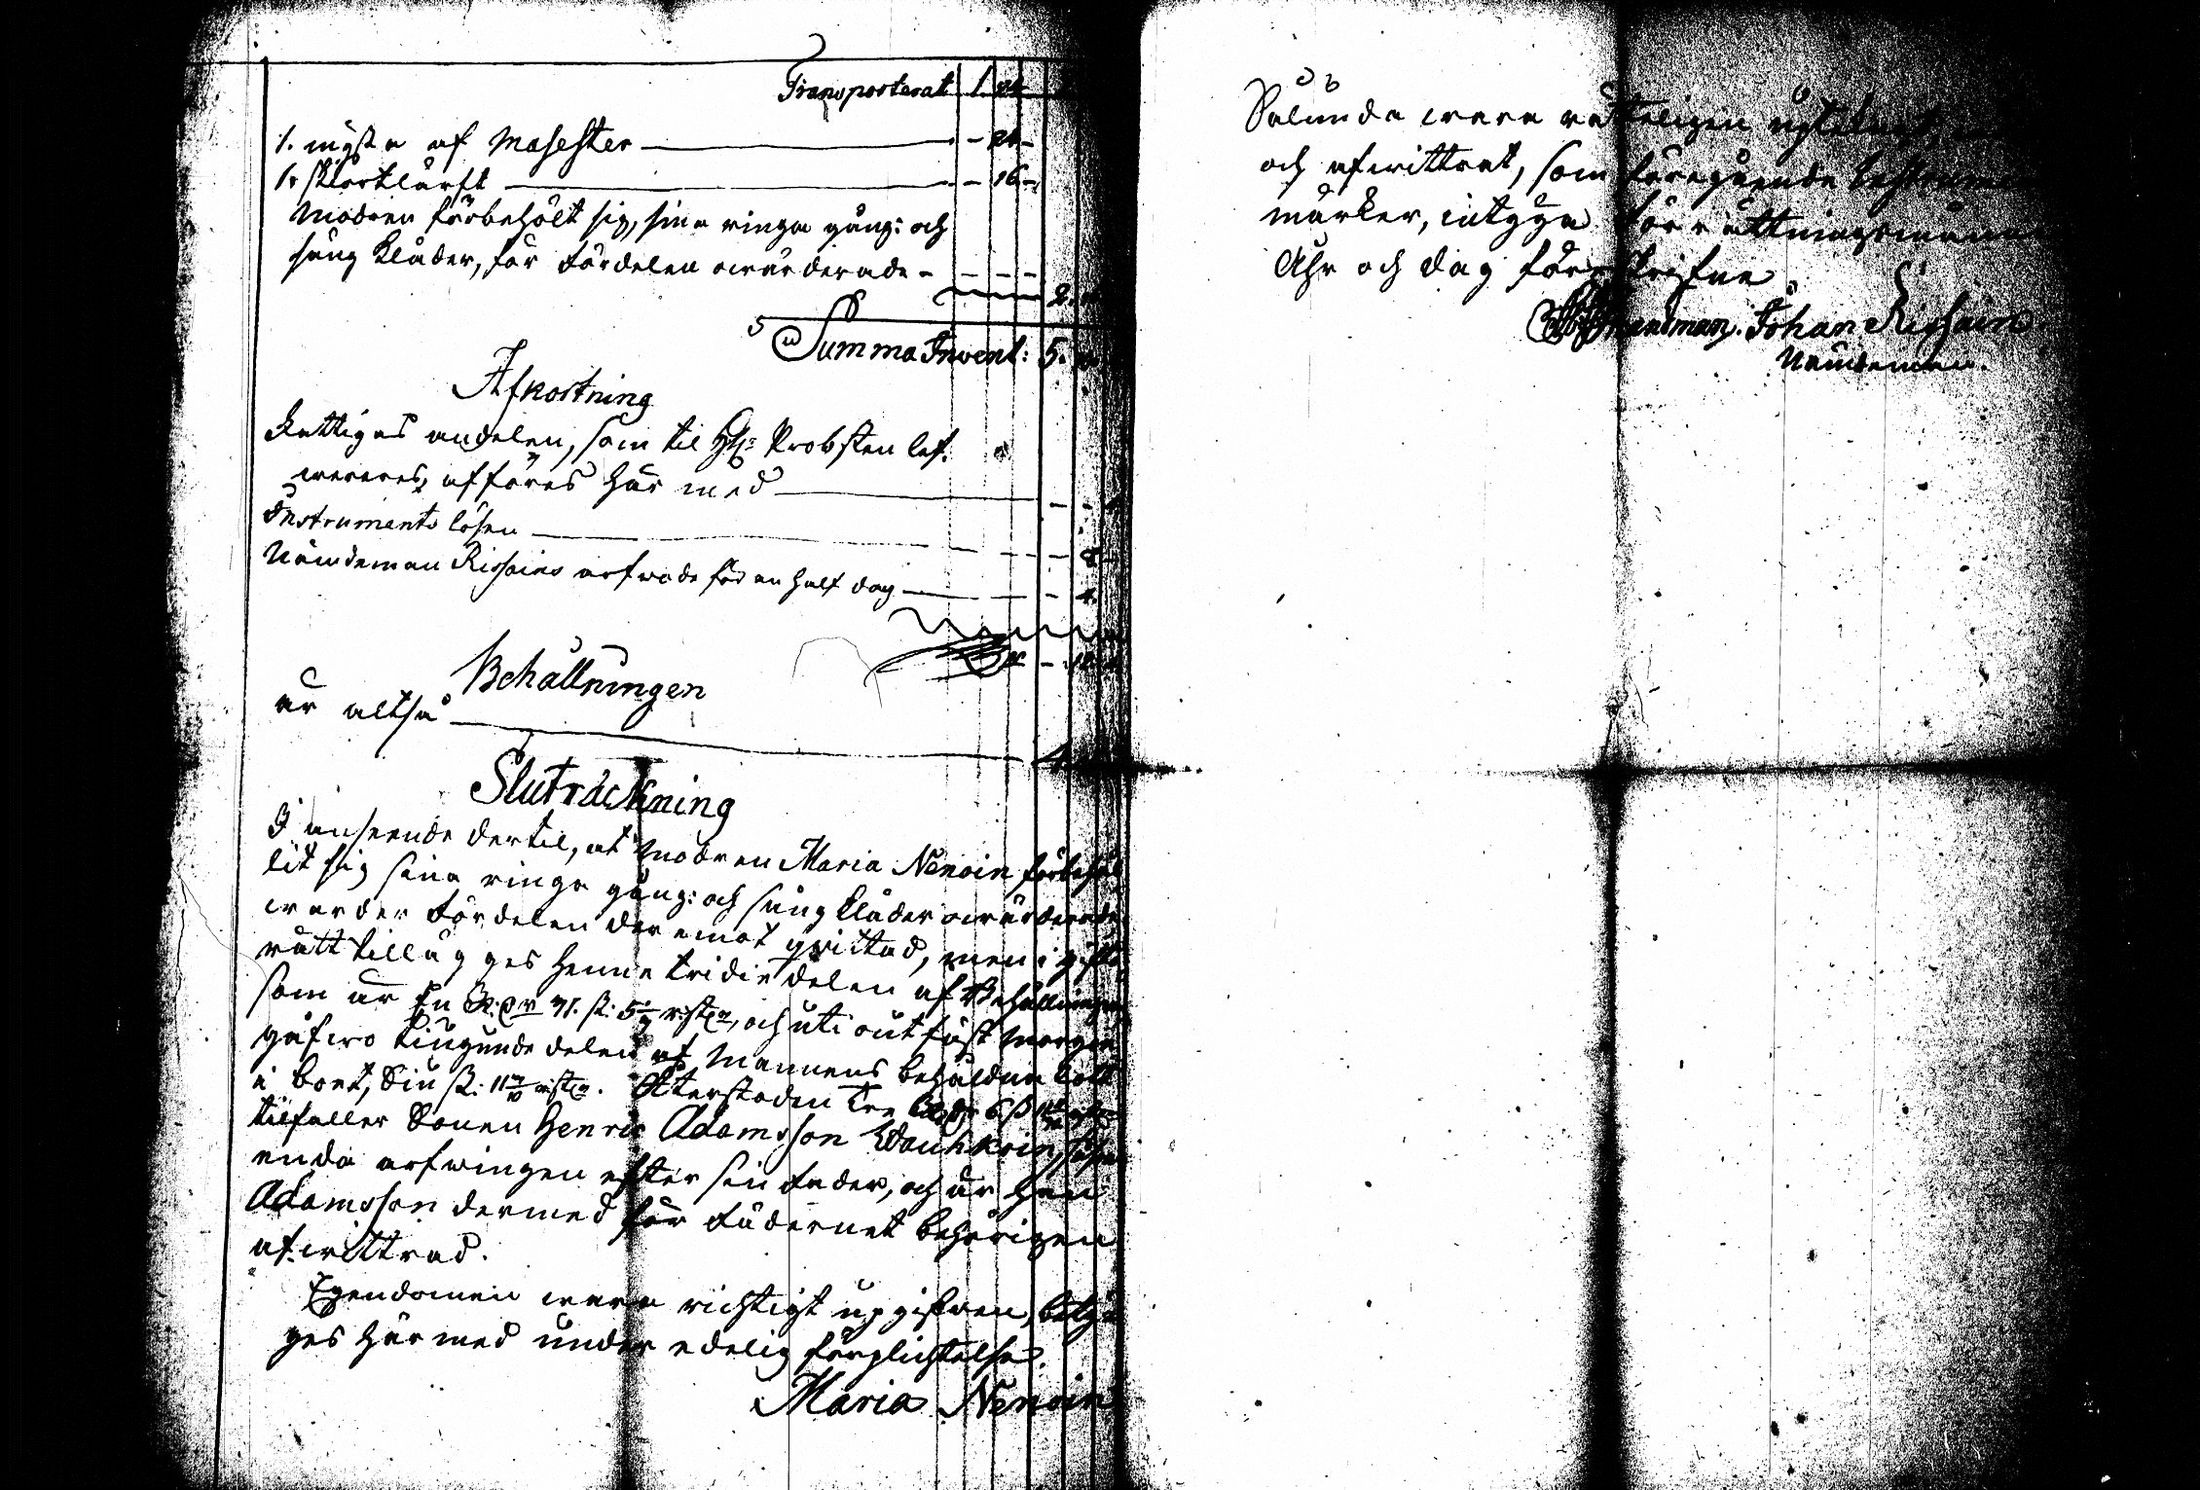 Transporterat 1. 24
1. mÿssa af Masester — - 24 -
1. skiortlärft — - 16 -
Modren förbehölt sig, sina ringa gång: och
säng kläder, för fördelen owärderade - - - -
2.
Summa Invent: 5.
Afkortning
Fattiges andelen, som til H:r Probsten lef-
wereres, afföres här med —
Instruments lösen — 8
Nämdeman Rissains arfwode för en half dag — 4.
Behållningen
är altså — 4
Sluträckning
I anseende dertil, at modren Maria Nenoin förbehål
lit sig sina ringa gång: och säng kläder owärderade
war der fördelen der emot qvittad, men i gifto
rätt tillägges henne tridie delen af Behållningen
som är En R:dr 31. ß: 5 rst:r, och uti outfäst morgon
gåfwo tiugunde delen af Mannens behåldna lott
i boet, Siu ß: 11 rst:r. Återstoden Tre R:dr 6 ß
tilfaller Sonen Henric Adamsson Wauhkoin, såsom
enda arfwingen efter sin fader, och är han
Adamsson dermed för fädernet behörigen
afwittrad.
Egendomen wara richtigt upgifwen, betyg
ges härmed under edelig förplichtelse.
Maria Nenoin
Sålunda wara rätteligen upteknat,
och afwittrat, som föregående Instrument
märker, intyga förrättningsmännen
Åhr och dag förrskrefne.
Johan Rissain
Nämdeman.